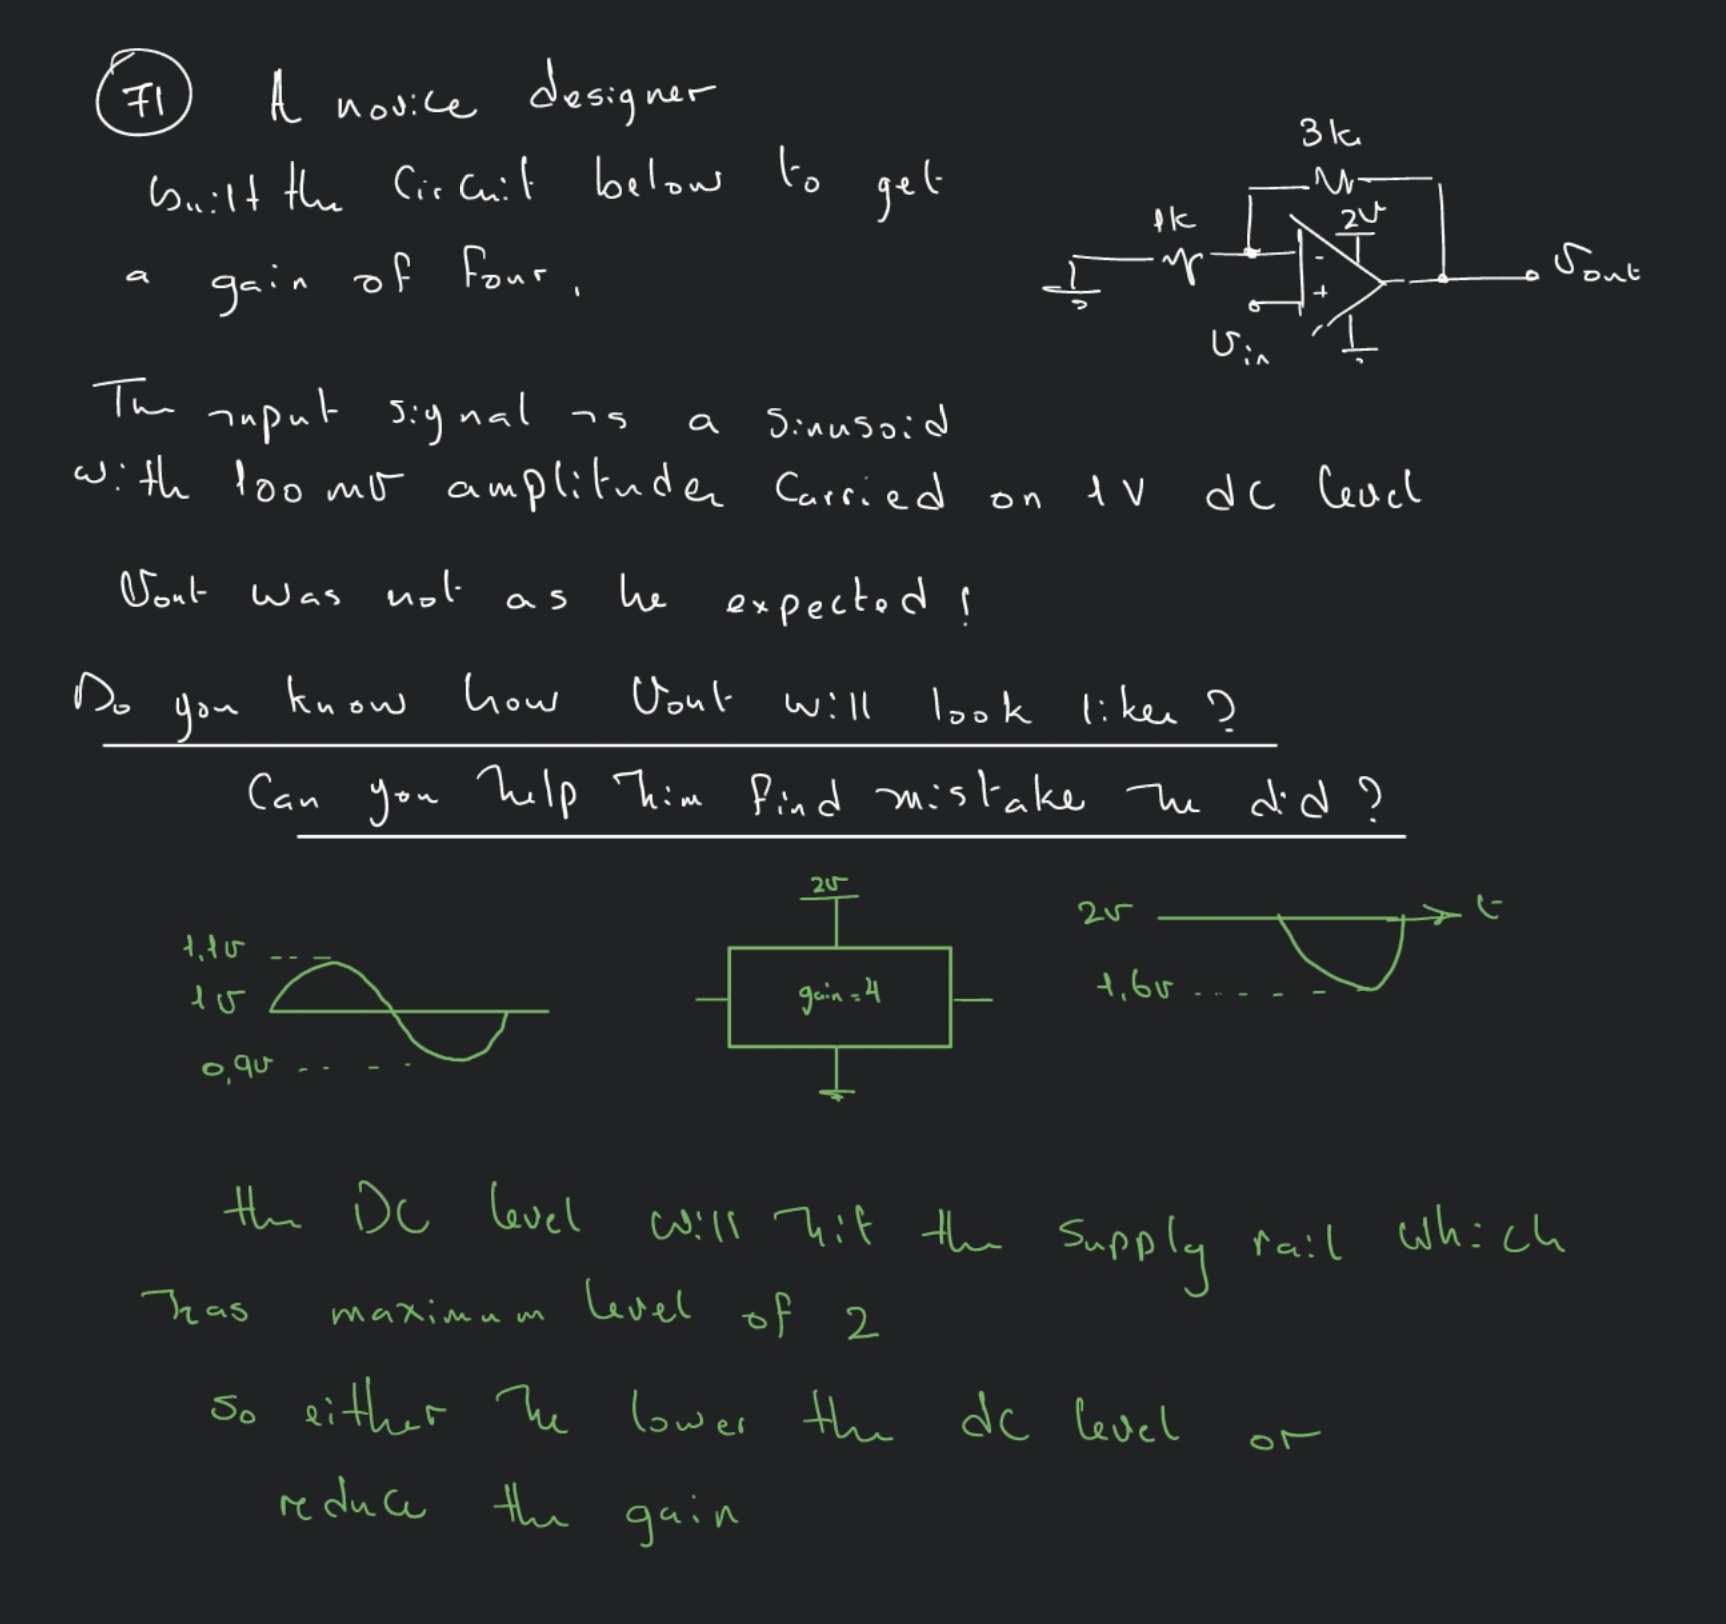 71 A novice designer
built the circuit below to get
a gain of four.
3k
1k
2V
Vout
-
+
Vin
The input signal is a sinusoid
with 100 mV amplitude carried on 1V dc level
Vout was not as he expected!
Do you know how Vout will look like?
Can you help him find mistake he did?
2V
1,1V
1V
0,9V
gain = 4
2V
t
1,6V
the DC level will hit the supply rail which
has maximum level of 2
so either he lower the dc level or
reduce the gain